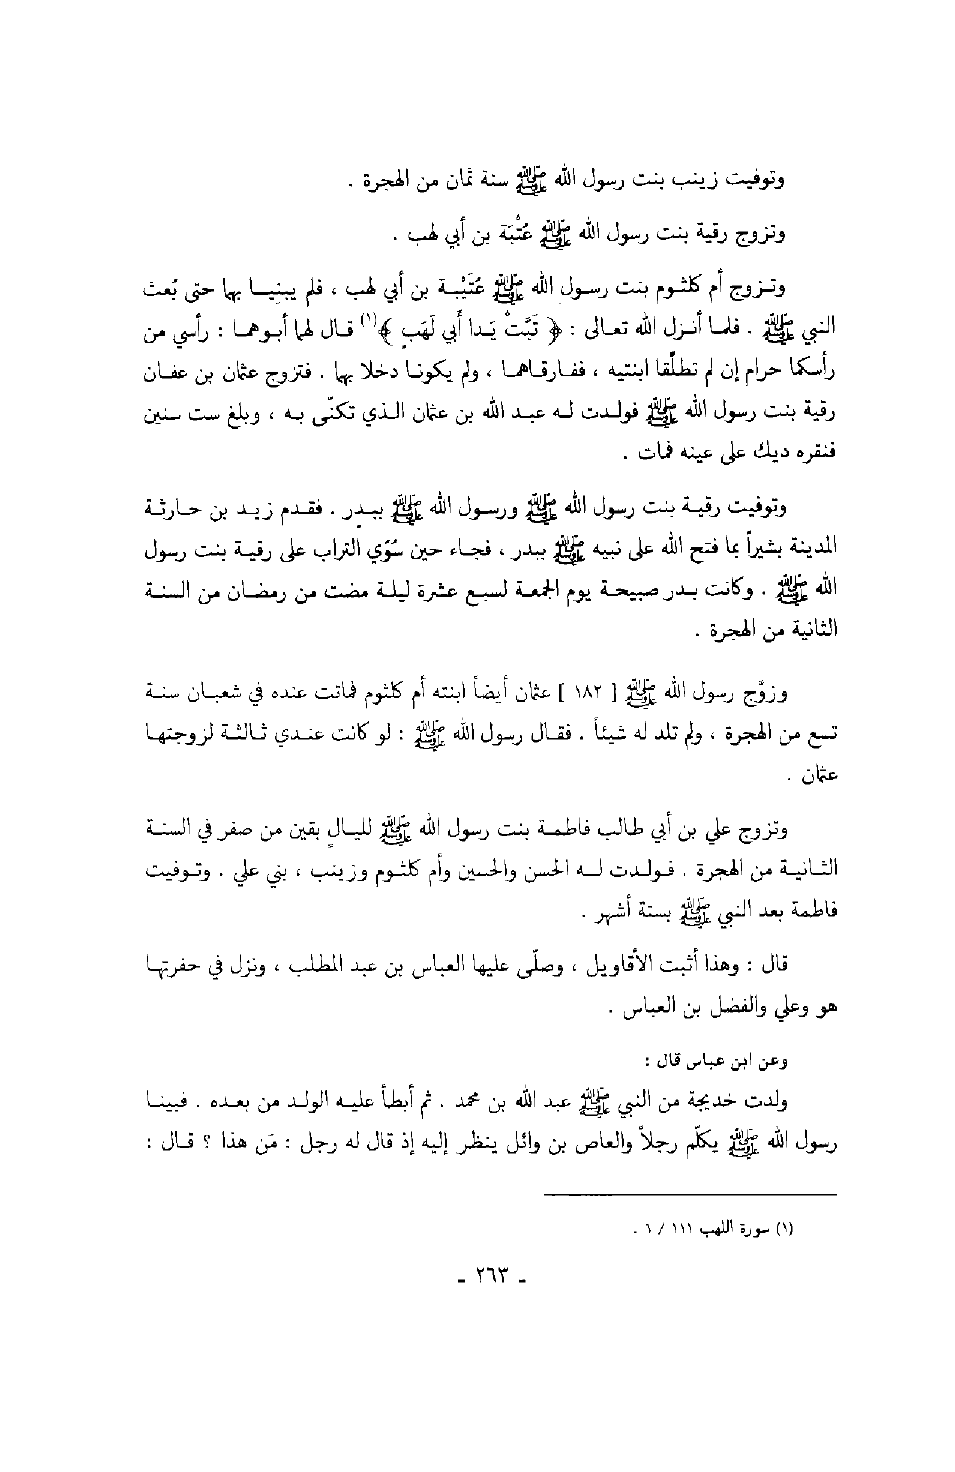 وتوفيت زينب بنت رسول الله ﷺ سنة ثمان من الهجرة .
وتزوج رقية بنت رسول الله ﷺ عُتْبَة بن أبي لهب .
وتـزوج أم كلثـوم بنت رسـول الله ﷺ عُتَيْبـة بن أبي لهب ، فلم يبنيـا بها حتى بُعث
النبي ﷺ . فلمـا أنـزل الله تعـالى : ﴿ تَبَّتْ يَـدا أَبي لَهَبٍ ﴾(١) قـال لهما أبـوهمـا : رأسي من
رأسكما حرام إن لم تطلّقا ابنتيه ، ففـارقـاهمـا ، ولم يكونـا دخلا بها . فتزوج عثمان بن عفـان
رقية بنت رسول الله ﷺ فولـدت لـه عبـد الله بن عثمان الـذي تكنّى بـه ، وبلغ ست سـنين
فنقره ديك على عينه فمات .
وتوفيت رقيـة بنت رسـول الله ﷺ ورسـول الله ﷺ ببـدر . فقـدم زيـد بن حـارثـة
المدينة بشيراً بما فتح الله على نبيه ﷺ ببدر ، فجـاء حين سُوّي التراب على رقيـة بنت رسول
الله ﷺ . وكانت بـدر صبيحـة يوم الجمعة لسبـع عشرة ليلـة مضت من رمضـان من السنـة
الثانية من الهجرة .
وزوَّج رسول الله ﷺ [ ١٨٢ ] عثمان أيضاً ابنته أم كلثوم فماتت عنده في شعبـان سنـة
تسع من الهجرة ، ولم تلد له شيئاً . فقـال رسول الله ﷺ : لو كانت عنـدي ثـالثـة لزوجتهـا
عثمان .
وتزوج علي بن أبي طالب فاطمـة بنت رسول الله ﷺ لليـالٍ بقين من صفر في السنـة
الثـانيـة من الهجرة . فـولـدت لــه الحسن والحسين وأم كلثـوم وزينب ، بني علي . وتـوفيت
فاطمة بعد النبي ﷺ بستة أشهر .
قال : وهذا أثبت الأقاويل ، وصلّى عليها العباس بن عبد المطلب ، ونزل في حفرتهـا
هو وعلي والفضل بن العباس .
وعن ابن عباس قال :
ولدت خديجة من النبي ﷺ عبد الله بن محمد . ثم أبطأ عليـه الولـد من بعـده . فبينـا
رسول الله ﷺ يكلّم رجلاً والعاص بن وائل ينظر إليه إذ قال له رجل : مَن هذا ؟ قـال :
(١) سورة اللهب ١١١ / ١ .
- ٢٦٣ -